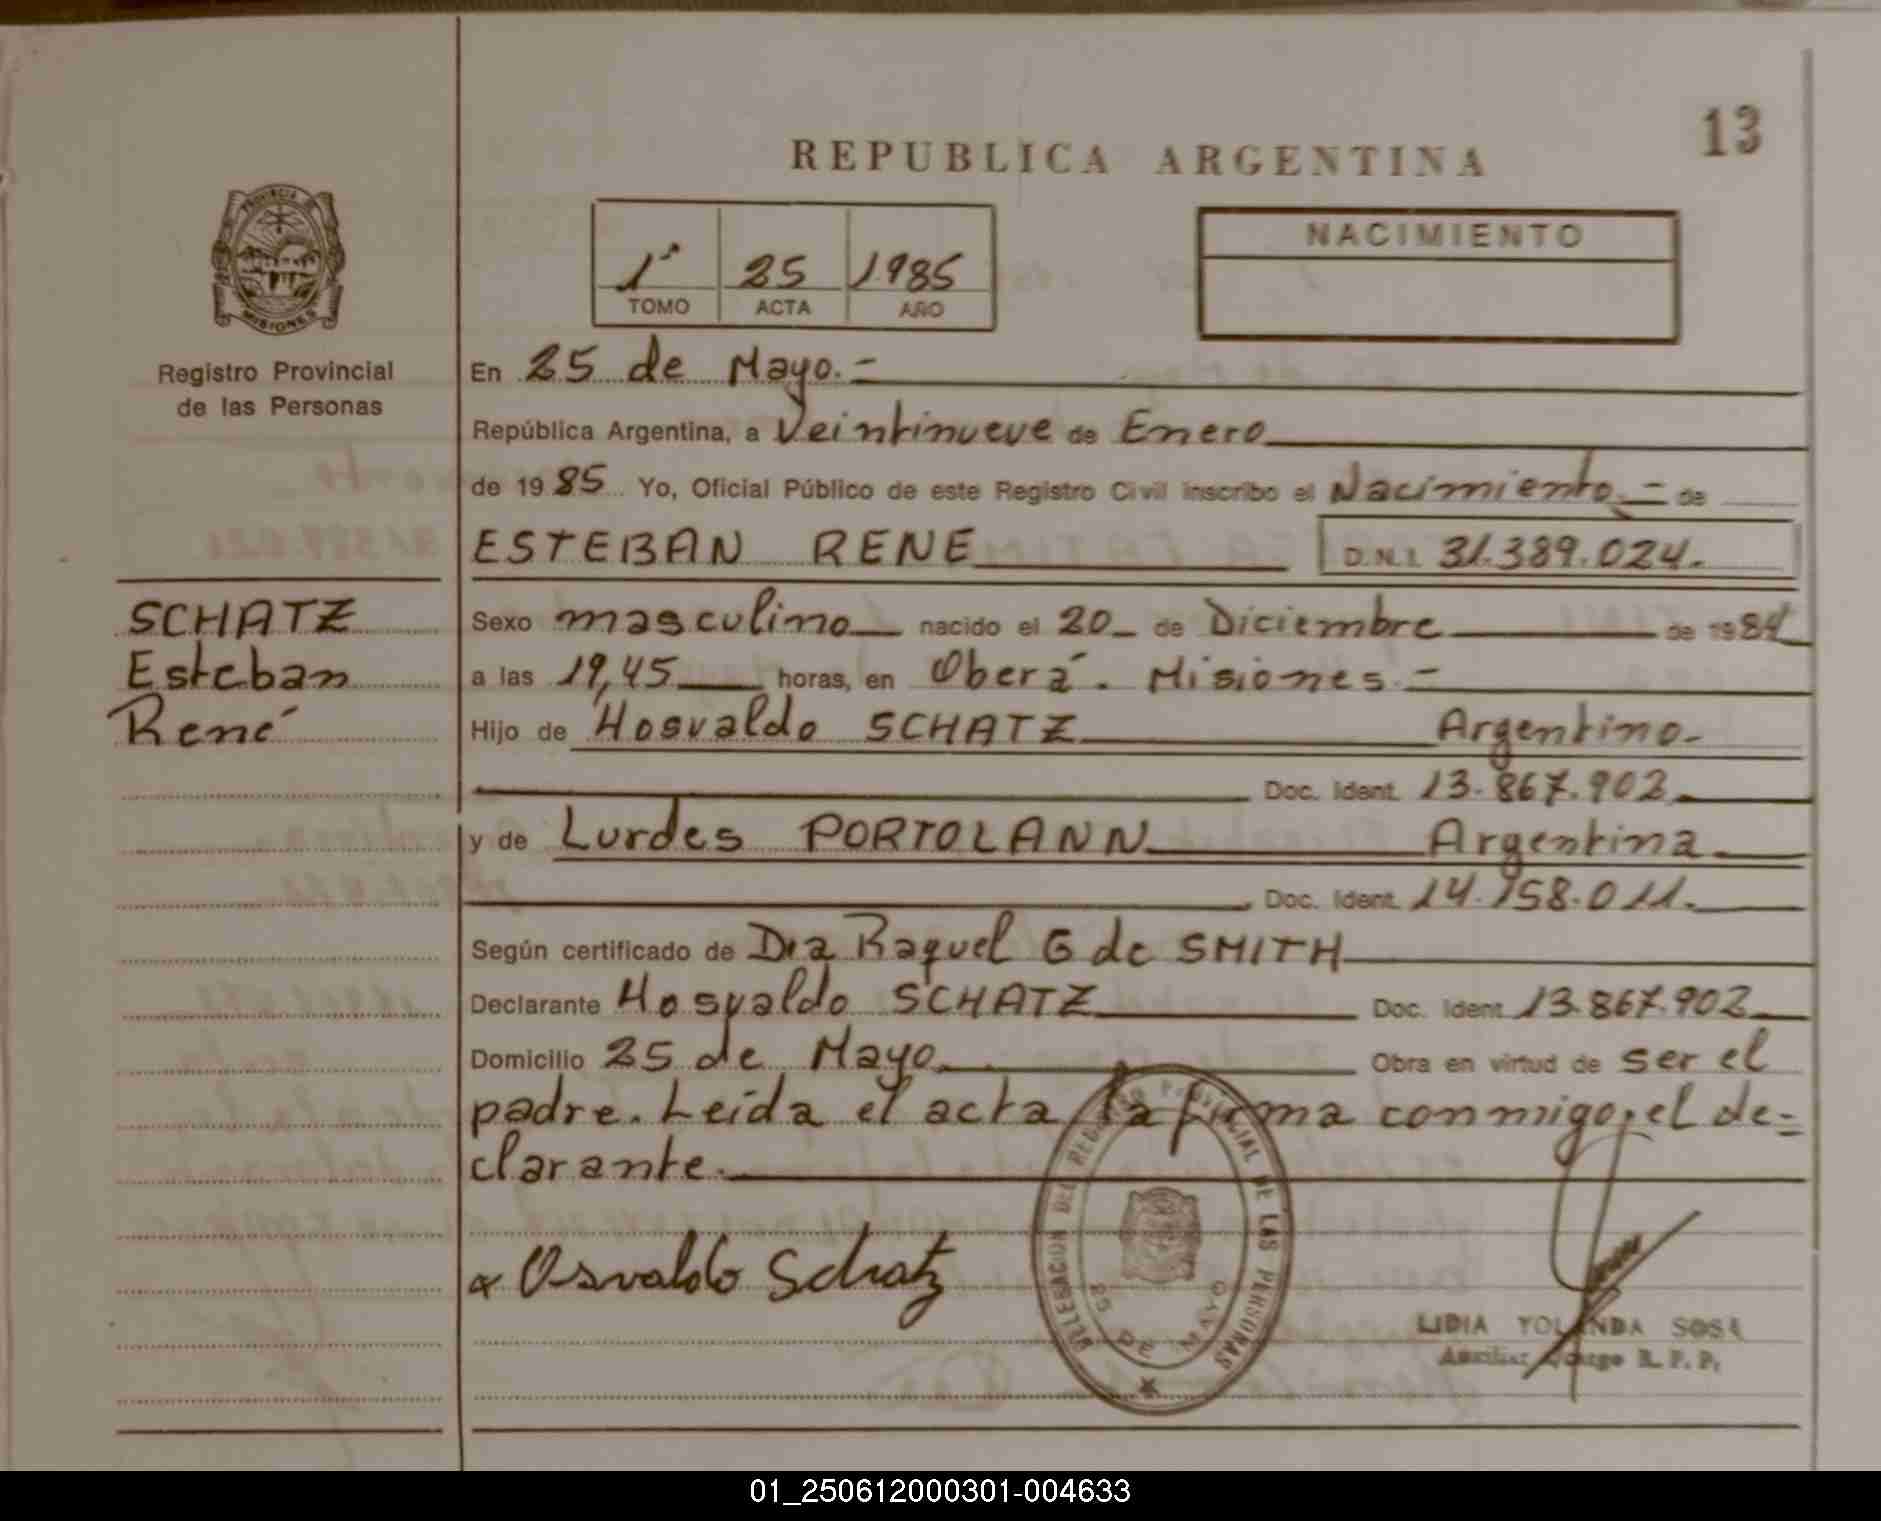 13
REPUBLICA ARGENTINA
PROVINCIA DE
MISIONES
Registro Provincial
de las Personas
1º 25 1985
TOMO ACTA AÑO
NACIMIENTO
En 25 de Mayo.-
República Argentina, a Veintinueve de Enero
de 1985 Yo, Oficial Público de este Registro Civil inscribo el Nacimiento.- de
ESTEBAN RENE D.N.I. 31.389.024.
SCHATZ
Esteban
René
Sexo masculino nacido el 20 de Diciembre de 1984
a las 19,45 horas, en Oberá. Misiones.-
Hijo de Hosvaldo SCHATZ Argentino.-
Doc. Ident. 13.867.902
y de Lurdes PORTOLANN Argentina
Doc. Ident. 14.158.011.
Según certificado de Dra Raquel G de SMITH
Declarante Hosvaldo SCHATZ Doc. Ident. 13.867.902
Domicilio 25 de Mayo Obra en virtud de ser el
padre. Leída el acta la firma conmigo, el de-
clarante.
Osvaldo Schatz
DELEGACION DEL REGISTRO PROVINCIAL DE LAS PERSONAS
25 DE MAYO
LIDIA YOLANDA SOSA
Auxiliar R. P. P.
01_250612000301-004633